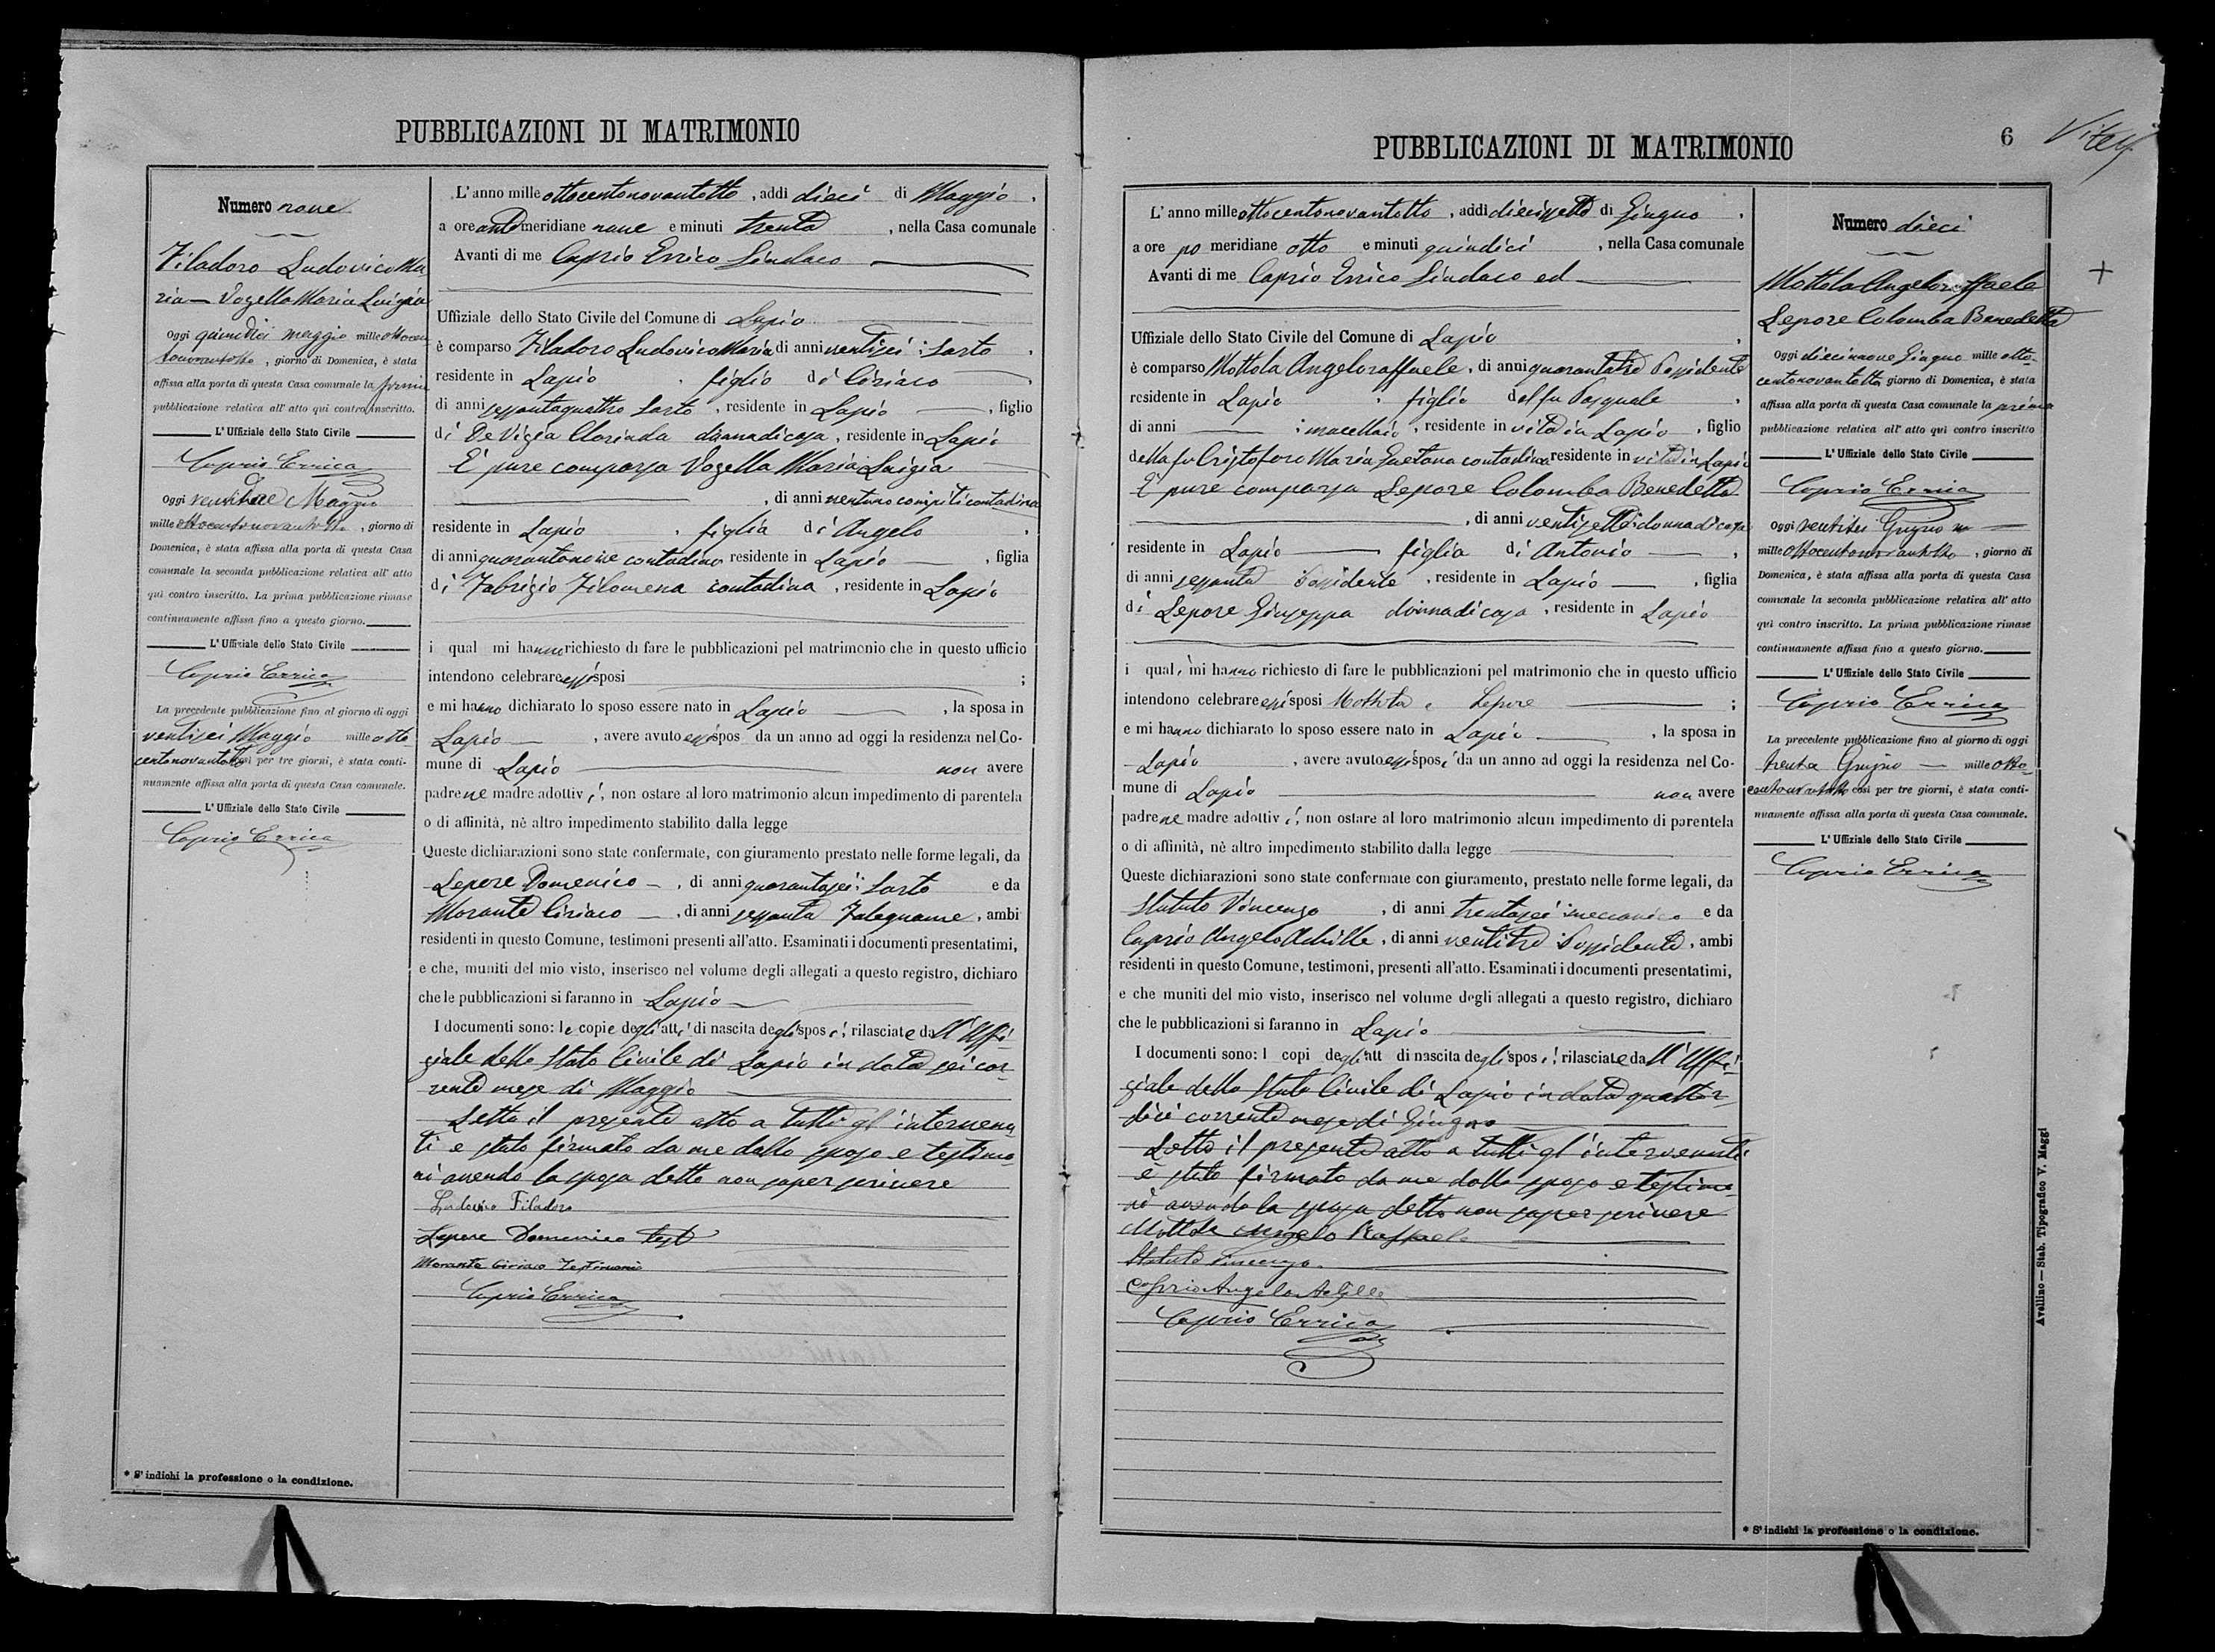 PUBBLICAZIONI DI MATRIMONIO
Numero nove
Filadoro Ludovico Ma
ria — Vozella Maria Luigia
Oggi quindici maggio mille ottocen
tonovantotto, giorno di Domenica, è stata
affissa alla porta di questa Casa comunale la prima
pubblicazione relativa all' atto qui contro inscritto.
L' Uffiziale dello Stato Civile
Caprio Errico
Oggi ventidue Maggio
mille ottocentonovantotto, giorno di
Domenica, è stata affissa alla porta di questa Casa
comunale la seconda pubblicazione relativa all' atto
qui contro inscritto. La prima pubblicazione rimase
continuamente affissa fino a questo giorno.
L' Uffiziale dello Stato Civile
Caprio Errico
La precedente pubblicazione fino al giorno di oggi
ventisei Maggio mille otto
centonovantotto così per tre giorni, è stata conti-
nuamente affissa alla porta di questa Casa comunale.
L' Uffiziale dello Stato Civile
Caprio Errico
* S' indichi la professione o la condizione.
L' anno mille ottocentonovantotto, addì dieci di Maggio,
a ore antimeridiane nove e minuti trenta, nella Casa comunale
Avanti di me Caprio Errico Sindaco
Uffiziale dello Stato Civile del Comune di Lapio
è comparso Filadoro Ludovico Maria di anni ventisei : Sarto,
residente in Lapio, figlio di Ciriaco,
di anni sessantaquattro Sarto, residente in Lapio, figlio
di De Vigia Clorinda donna di casa, residente in Lapio
È pure comparsa Vozella Maria Luigia
, di anni ventuno compiti contadina
residente in Lapio, figlia di Angelo,
di anni quarantanove contadino residente in Lapio, figlia
di Fabrizio Filomena contadina, residente in Lapio
i qual mi hanno richiesto di fare le pubblicazioni pel matrimonio che in questo ufficio
intendono celebrare essi sposi ;
e mi hanno dichiarato lo sposo essere nato in Lapio, la sposa in
Lapio, avere avuto essi spos da un anno ad oggi la residenza nel Co-
mune di Lapio non avere
padre ne madre adottivi, non ostare al loro matrimonio alcun impedimento di parentela
o di affinità, nè altro impedimento stabilito dalla legge
Queste dichiarazioni sono state confermate, con giuramento prestato nelle forme legali, da
Lepore Domenico, di anni quarantasei : Sarto e da
Morante Ciriaco, di anni sessanta Falegname, ambi
residenti in questo Comune, testimoni presenti all'atto. Esaminati i documenti presentatimi,
e che, muniti del mio visto, inserisco nel volume degli allegati a questo registro, dichiaro
che le pubblicazioni si faranno in Lapio
I documenti sono: le copie degli atti di nascita degli sposi, rilasciate dall' Uffi-
ziale dello Stato Civile di Lapio in data sei cor-
rente mese di Maggio
Letto il presente atto a tutti gl' intervenu-
ti e stato firmato da me dallo sposo e testimo-
ni avendo la sposa detto non saper scrivere
Ludovico Filadoro
Lepore Domenico test
Morante Ciriaco Testimonio
Caprio Errico
PUBBLICAZIONI DI MATRIMONIO
6
L' anno mille ottocentonovantotto, addì diecissette di Giugno,
a ore pomeridiane otto e minuti quindici, nella Casa comunale
Avanti di me Caprio Errico Sindaco ed
Uffiziale dello Stato Civile del Comune di Lapio,
è comparso Mottola Angeloraffaele, di anni quarantatre Possidente
residente in Lapio, figlio del fu Pasquale,
di anni : macellaio, residente in vita in Lapio, figlio
della fu Cristoforo Maria Gaetana contadina residente in vita in Lapio
È pure comparsa Lepore Colomba Benedetta
, di anni ventisette : donna di casa
residente in Lapio figlia di Antonio,
di anni sessanta Possidente, residente in Lapio, figlia
di Lepore Giuseppa donna di casa, residente in Lapio
i quali mi hanno richiesto di fare le pubblicazioni pel matrimonio che in questo ufficio
intendono celebrare essi sposi Mottola e Lepore ;
e mi hanno dichiarato lo sposo essere nato in Lapio, la sposa in
Lapio, avere avuto essi sposi da un anno ad oggi la residenza nel Co-
mune di Lapio non avere
padre ne madre adottivi, non ostare al loro matrimonio alcun impedimento di parentela
o di affinità, nè altro impedimento stabilito dalla legge
Queste dichiarazioni sono state confermate con giuramento, prestato nelle forme legali, da
Statuto Vincenzo, di anni trentasei : meccanico e da
Caprio Angelo Achille, di anni ventitre : Possidente, ambi
residenti in questo Comune, testimoni, presenti all'atto. Esaminati i documenti presentatimi,
e che muniti del mio visto, inserisco nel volume degli allegati a questo registro, dichiaro
che le pubblicazioni si faranno in Lapio
I documenti sono: l copi degli att di nascita degli sposi, rilasciate dall' Uffi-
ziale dello Stato Civile di Lapio in data quattor-
dici corrente mese di Giugno
Letto il presente atto a tutti gl' intervenuti
è stato firmato da me dallo sposo e testimo-
ni avendo la sposa detto non saper scrivere
Mottola Angelo Raffaele
Statuto Vincenzo
Caprio Angelo Achille
Caprio Errico
Numero dieci
Mottola Angeloraffaele
Lepore Colomba Benedetta
Oggi diecinnove Giugno mille otto-
centonovantotto giorno di Domenica, è stata
affissa alla porta di questa Casa comunale la prima
pubblicazione relativa all' atto qui contro inscritto
L' Uffiziale dello Stato Civile
Caprio Errico
Oggi ventisei Giugno
mille ottocentonovantotto, giorno di
Domenica, è stata affissa alla porta di questa Casa
comunale la seconda pubblicazione relativa all' atto
qui contro inscritto. La prima pubblicazione rimase
continuamente affissa fino a questo giorno.
L' Uffiziale dello Stato Civile
Caprio Errico
La precedente pubblicazione fino al giorno di oggi
trenta Giugno mille otto-
centonovantotto così per tre giorni, è stata conti-
nuamente affissa alla porta di questa Casa comunale.
L' Uffiziale dello Stato Civile
Caprio Errico
* S' indichi la professione o la condizione.
Avellino — Stab. Tipografico V. Maggi